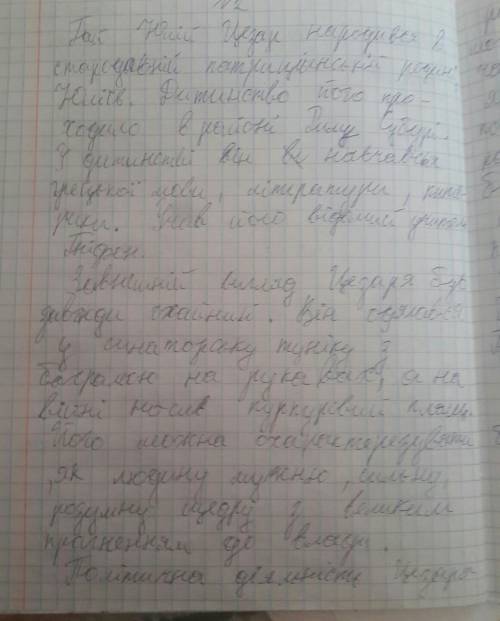 №2
Гай Юлій Цезар народився в
стародавній патриціанській родині
Юліїв. Дитинство його про-
ходило в районі Риму Субурі.
У дитинстві він в навчався
грецької мови, літератури,
рики. Знав його відомий
Гніфон.
Зовнішній вигляд Цезаря був
завжди охайний. Він одягався
у сенаторську туніку з
бахромою на рукавах, а на
війні носив пурпуровий плащ.
Його можна охарактеризувати
, як людину мужню, сильну,
розумну щедру з великим
прагненням до влади.
Політична діяльність Цезаря